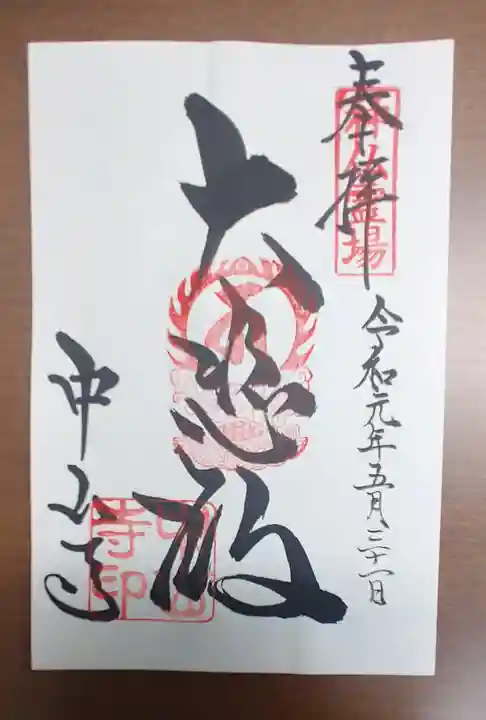 奉拝
神仏霊場
令和元年五月三十一日
大悲殿
中山寺
中山
寺印